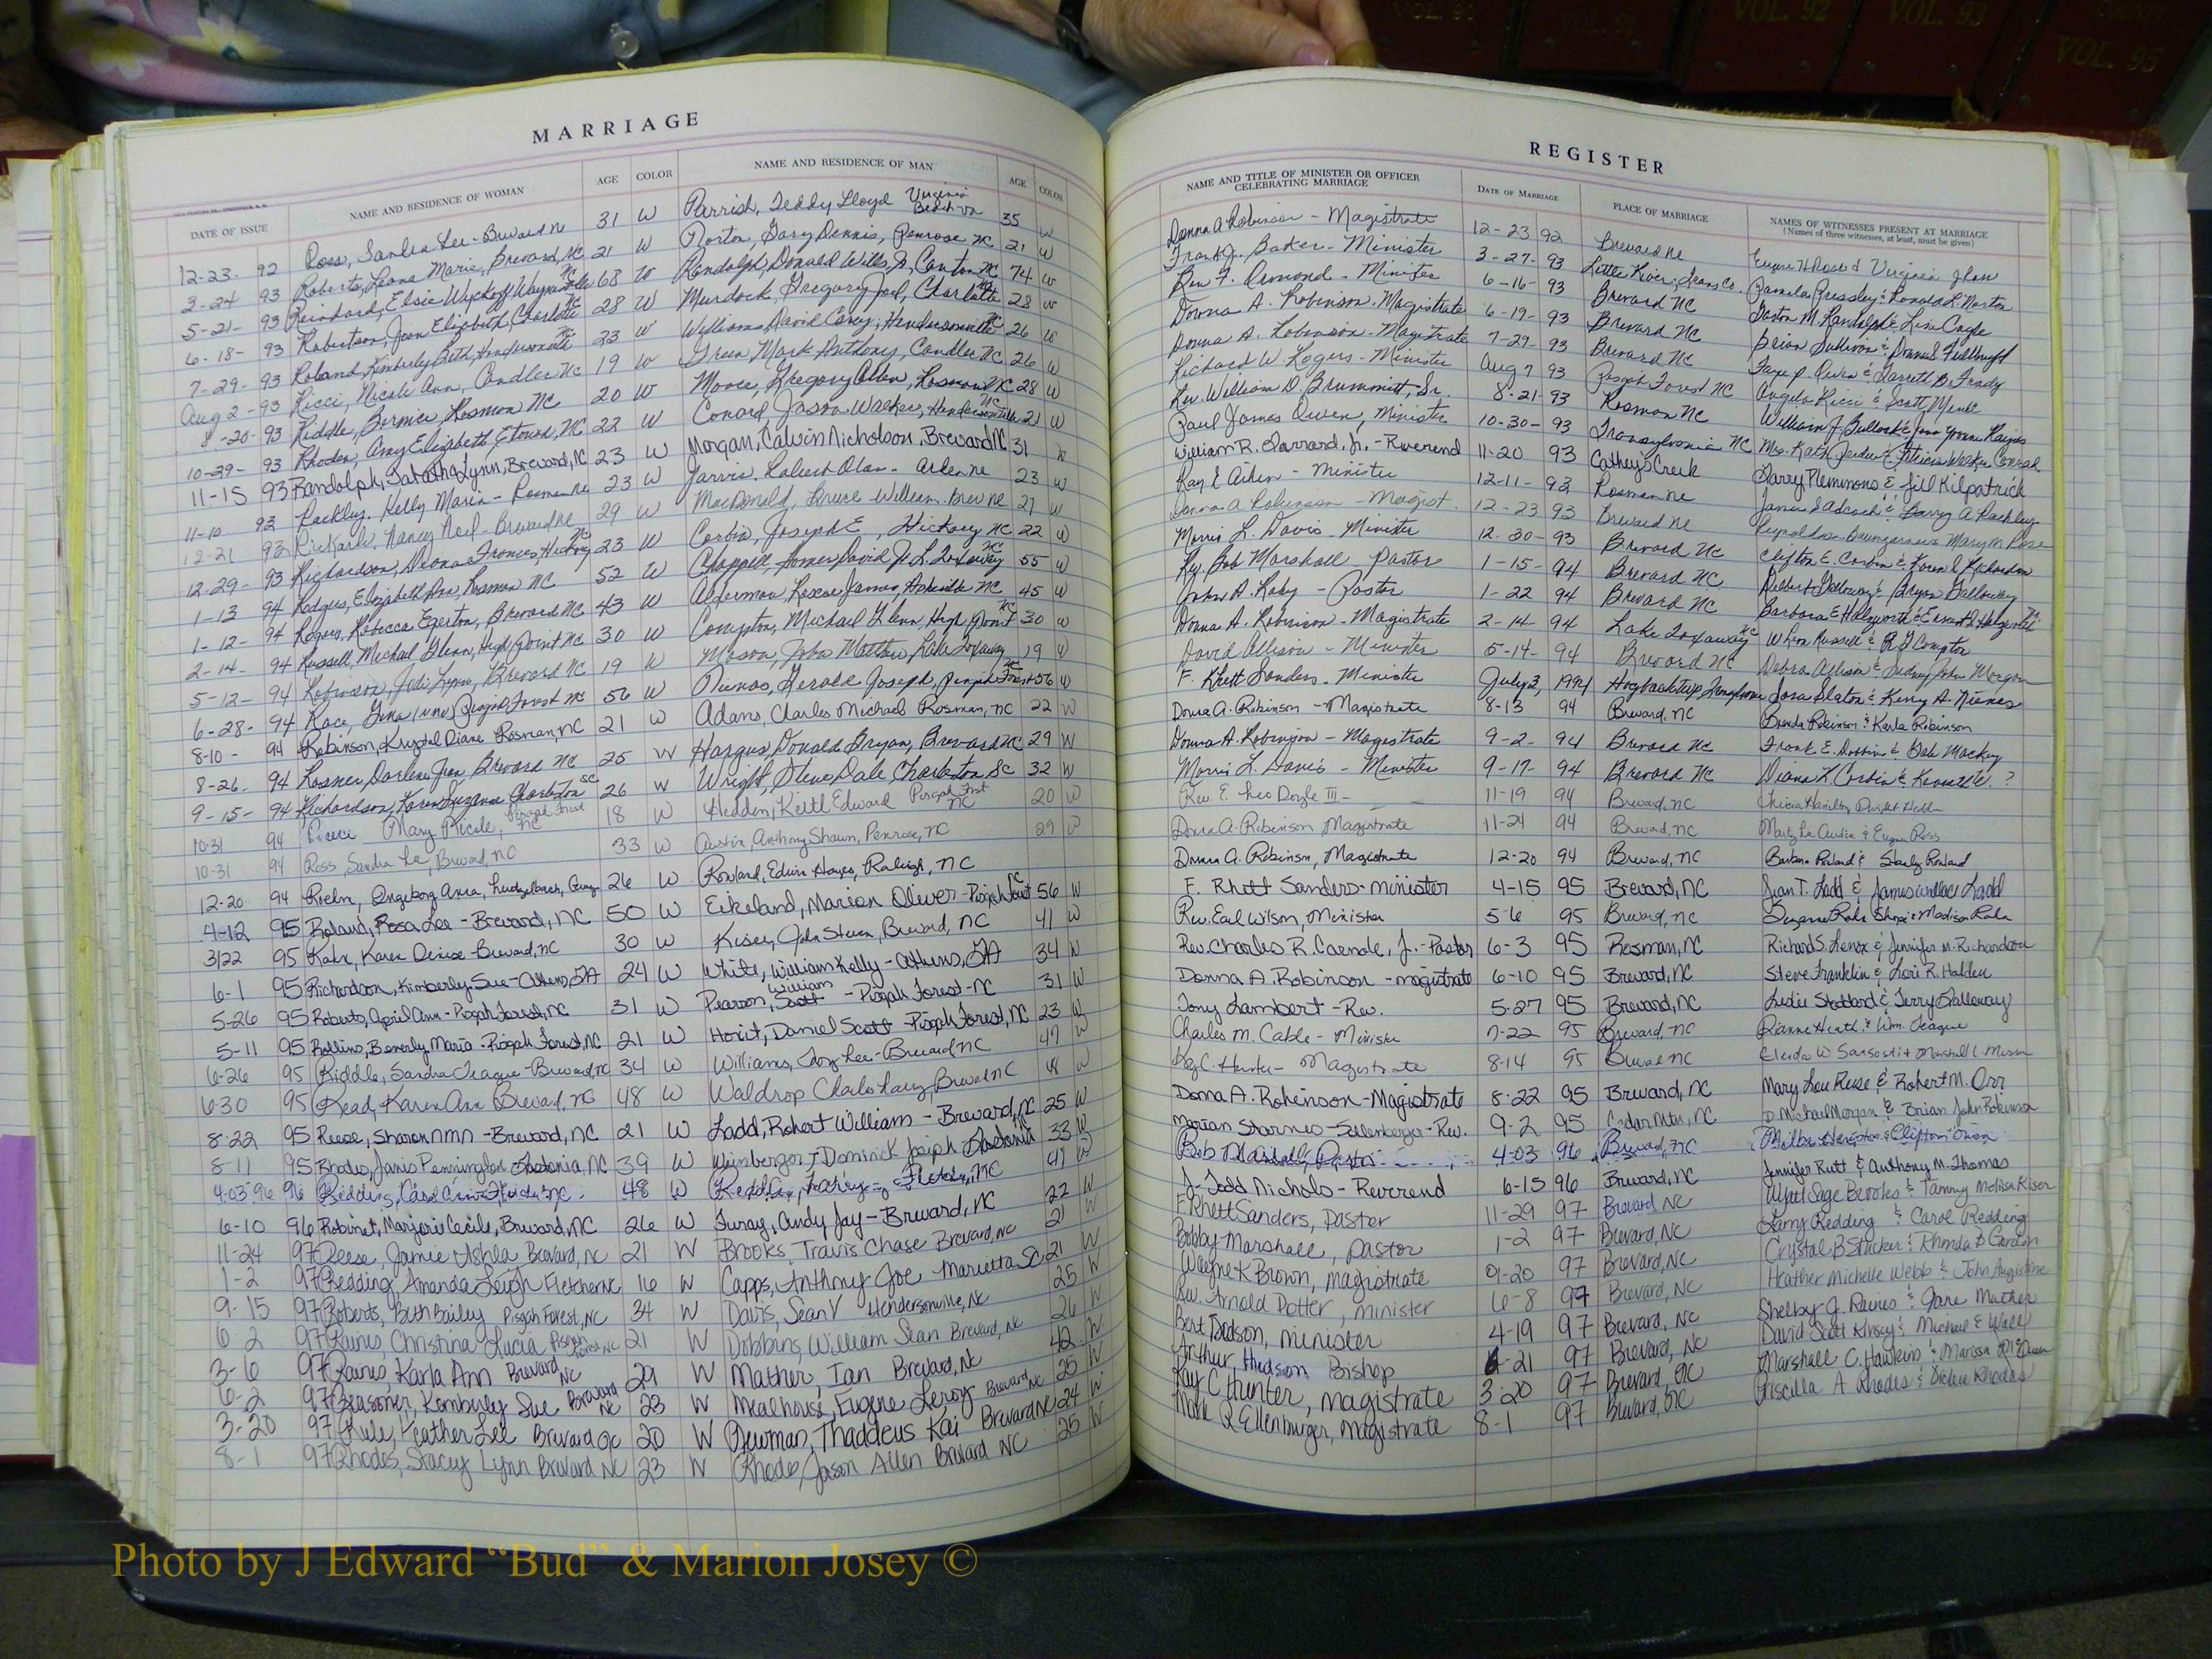 VOL. 90 VOL. 91 VOL. 92 VOL. 93 COUNTY VOL. 95
MARRIAGE
DATE OF ISSUE NAME AND RESIDENCE OF WOMAN AGE COLOR NAME AND RESIDENCE OF MAN AGE COLOR
12-23- 92 Ross, Sandra Lee - Brevard NC 31 W Parrish, Teddy Lloyd Virginia Beach Va 35 W
3-24 93 Roberts, Leona Marie, Brevard, NC 21 W Norton, Gary Dennis, Penrose NC 21 W
5-21- 93 Reinhard, Elsie Wyckoff Waynesville NC 68 W Randolph, Donald Wills, Jr, Canton NC 74 W
6-18- 93 Robertson, Jean Elizabeth, Charlotte NC 28 W Murdock, Gregory Joel, Charlotte NC 28 W
7-29- 93 Roland, Kimberly Beth, Hendersonville NC 23 W Williams, David Carey, Hendersonville NC 26 W
Aug 2 - 93 Ricci, Nicole Ann, Candler NC 19 W Green Mark Anthony, Candler NC 26 W
8-20- 93 Riddle, Bernice, Rosman NC 20 W Moore, Gregory Allen, Rosman NC 28 W
10-29- 93 Rhoden, Amy Elizabeth, Etowah, NC 22 W Conard Jason Walker, Hendersonville NC 21 W
11-15 93 Randolph, Tabatha Lynn, Brevard, NC 23 W Morgan, Calvin Nicholson, Brevard NC 31 W
11-10 93 Rackley, Kelly Marie - Rosman NC 23 W Jarvis, Robert Olan - Arden NC 23 W
12-21 93 Rickards, Nancy Neil - Brevard NC 29 W MacDonald, Bruce William - Brev NC 27 W
12-29- 93 Richardson, Deona Frances, Hickory NC 23 W Corbin, Joseph E, Hickory NC 22 W
1-13 94 Rodgers, Elizabeth Ann, Rosman NC 52 W Chappell, Homer David Jr L. Toxaway NC 55 W
1-12- 94 Rogers, Rebecca Egerton, Brevard NC 43 W Alderman, Roscoe James, Asheville NC 45 W
2-14- 94 Russell, Michael Glenn, High Point NC 30 W Compton, Michael Glenn, High Point NC 30 W
5-12- 94 Robinson, Juli Lynn, Brevard NC 19 W Mason, John Matthew, Lake Toxaway NC 19 W
6-28- 94 Race, Gina Pisgah Forest NC 56 W Nienas, Gerald Joseph, Pisgah Forest 56 W
8-10- 94 Robinson, Krystal Diane Rosman, NC 21 W Adams, Charles Michael Rosman, NC 22 W
8-26- 94 Rosner, Darlene Jean Brevard NC 25 W Hargus, Donald Bryan, Brevard NC 29 W
9-15- 94 Richardson, Karen Suzanne Charleston SC 26 W Wright, Steve Dale Charleston SC 32 W
10-31 94 Mary Nicole, Pisgah Forest NC 18 W Hedden, Keith Edward Pisgah Frst NC 20 W
10-31 94 Ross, Sandra Le, Brevard, NC 33 W Austin, Anthony Shawn, Penrose, NC 29 W
12-20 94 Roehn, Ingeborg Anna, 26 W Rowland, Edwin Hayes, Raleigh, NC
4-12 95 Roland, Rosa Lea - Brevard, NC 50 W Eikeland, Marion Oliver - Pisgah Forest NC 56 W
3/22 95 Rahn, Karen Denise - Brevard, NC 30 W Kisey, John Steven, Brevard, NC 41 W
6-1 95 Richardson, Kimberly Sue - Athens, GA 24 W White, William Kelly - Athens, GA 34 W
5-26 95 Roberts, April Ann - Pisgah Forest, NC 31 W Pearson, William Scott - Pisgah Forest - NC 31 W
5-11 95 Rollins, Beverly Maria - Pisgah Forest, NC 21 W Horit, Daniel Scott - Pisgah Forest, NC 23 W
6-26 95 Riddle, Sandra Teague - Brevard, NC 34 W Williams, Troy Lee - Brevard NC 47 W
6-30 95 Read, Karen Ann Brevard, NC 48 W Waldrop Charles Larry, Brevard NC W
8-22 95 Reese, Sharon NMN - Brevard, NC 21 W Ladd, Robert William - Brevard, NC 25 W
8-11 95 Rhodes, Janis Pennington Gastonia, NC 39 W Weinberger, Dominick Joseph Gastonia 33 W
4-03 96 96 Redding, Carol 48 W Redding, Fletcher, NC 41 W
6-10 96 Robinet, Marjorie Cecile, Brevard, NC 26 W Turay, Andy Jay - Brevard, NC 22 W
11-24 97 Reese, Jamie Ashla Brevard, NC 21 W Brooks, Travis Chase Brevard, NC 21 W
1-2 97 Redding, Amanda Leigh Fletcher NC 16 W Capps, Anthony Joe Marietta SC 21 W
9-15 97 Roberts, Beth Bailey Pisgah Forest, NC 34 W Davis, Sean V Hendersonville, NC 25 W
6-2 97 Raines, Christina Lucia Pisgah Forest NC 21 W Dobbins, William Sean Brevard, NC 26 W
3-6 97 Raines, Karla Ann Brevard NC 29 W Mather, Ian Brevard, NC 42 W
6-2 97 Reasoner, Kimberly Sue Brevard NC 23 W Mealhouse, Eugene Leroy Brevard NC 25 W
3-20 97 Rule, Heather Lee Brevard NC 20 W Newman, Thaddeus Kai Brevard NC 24 W
8-1 97 Rhodes, Stacey Lynn Brevard NC 23 W Rhodes, Jason Allen Brevard NC 25 W
REGISTER
NAME AND TITLE OF MINISTER OR OFFICER CELEBRATING MARRIAGE DATE OF MARRIAGE PLACE OF MARRIAGE NAMES OF WITNESSES PRESENT AT MARRIAGE
(Names of three witnesses, at least, must be given)
Donna A Robinson - Magistrate 12-23 92 Brevard NC Virginia Glenn
Frank J. Baker - Minister 3-27- 93 Little River, Trans Co. Pamela Pressley & Ronald L. Norton
Ben F. Ormond - Minister 6-16- 93 Brevard NC Gaston M. Randolph & Lisa Cagle
Donna A. Robinson - Magistrate 6-19- 93 Brevard NC Brian Sullivan & Donna L Fullbright
Donna A. Robinson - Magistrate 7-29- 93 Brevard NC Faye P. Owen & Garrett B. Frady
Richard W. Rogers - Minister Aug 7 93 Pisgah Forest NC Angela Ricci & Scott
Rev. William D. Brummitt, Sr. 8-21- 93 Rosman NC William J. Bullock &
Paul James Owen, Minister 10-30- 93 Transylvania NC Mrs. & Patricia Walker Conrad
William R. Garrard, Jr. - Reverend 11-20 93 Catheys Creek Larry Plemmons & Jill Kilpatrick
Ray E Aiken - Minister 12-11- 93 Rosman NC & Larry A Rackley
Donna A Robinson - Magist. 12-23 93 Brevard NC & Mary M Rose
Morris L. Davis - Minister 12-30- 93 Brevard NC Clifton E. Corbin & Karen L Richardson
Rev Bob Marshall - Pastor 1-15- 94 Brevard NC Delbert Galloway & Bryan Galloway
John A. Raby - Pastor 1-22 94 Brevard NC Barbara E Holsworth &
Donna A. Robinson - Magistrate 2-14- 94 Lake Toxaway NC Russell & R G Compton
David Allison - Minister 5-14- 94 Brevard NC Debra Allison & Sidney John Morgan
F. Rhett Sanders - Minister July 2, 1994 & Kerry A. Nienas
Donna A. Robinson - Magistrate 8-13 94 Brevard, NC Brenda Robinson & Karla Robinson
Donna A. Robinson - Magistrate 9-2- 94 Brevard NC Frank E. Dobbin & Gale Mackey
Morris L. Davis - Minister 9-17- 94 Brevard NC Diane L. Corbin & Kenneth W. ?
Rev. E. Leo Doyle III - 11-19 94 Brevard, NC Tricia Hamilton, Hedden
Donna A. Robinson Magistrate 11-24 94 Brevard, NC Marty Le Austin & Eugene Ross
Donna A. Robinson, Magistrate 12-20 94 Brevard, NC Barbara Rowland & Rowland
F. Rhett Sanders - minister 4-15 95 Brevard, NC Jean T. Ladd & James Wallace Ladd
Rev. Earl Wilson, Minister 5-6 95 Brevard, NC Suzanne Rahn & Madison Rahn
Rev. Charles R. Carnole, Jr. - Pastor 6-3 95 Rosman, NC Richard S. Lenox & Jennifer M. Richardson
Donna A. Robinson - magistrate 6-10 95 Brevard, NC Steve Franklin & Lori R. Holden
Tony Lambert - Rev. 5-27 95 Brevard, NC Leslie Stoddard & Terry Galloway
Charles M. Cable - Minister 7-22 95 Brevard, NC Dianne Heath & Wm. Teague
Ray C. Hunter - Magistrate 8-14 95 Brevard NC
Donna A. Robinson - Magistrate 8-22 95 Brevard, NC Mary Lou Reese & Robert M. Orr
Marian Starnes - Sellenberger - Rev. 9-2 95 Cedar Mtn, NC D. Michael Morgan & Brian John Robinson
Bob Marshall, Pastor 4-03 96 Brevard, NC & Clifton Owen
J. Todd Nichols - Reverend 6-15 96 Brevard, NC Jennifer Rutt & Anthony M. Thomas
F Rhett Sanders, Pastor 11-29 97 Brevard NC Wyatt Sage Brooks & Tammy Melissa Kiser
Bobby Marshall, Pastor 1-2 97 Brevard, NC Larry Redding & Carol Redding
Wayne K Brown, Magistrate 9-20 97 Brevard, NC Crystal B Stucker & Rhonda D Gordon
Rev. Arnold Potter, Minister 6-8 97 Brevard, NC Heather Michelle Webb & John Augustine
Bert Dodson, minister 4-19 97 Brevard, NC Shelby G. Raines & Jane Mather
Arthur Hudson Bishop 6-21 97 Brevard, NC David Scott Kinsey & Michael E Wall
Ray C Hunter, Magistrate 3-20 97 Brevard NC Marshall C. Hawkins & Marissa
Mark R. Ellenburger, Magistrate 8-1 97 Brevard, NC Priscilla A Rhodes & Dickie Rhodes
Photo by J Edward “Bud” & Marion Josey ©